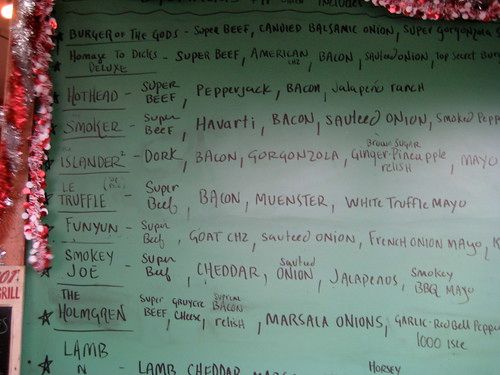 BURGER OF THE GODS - SUPER BEEF, CANDIED BALSAMIC ONION, SUPER GORGONZOLA
HOMAGE TO DICKS DELUXE - SUPER BEEF, AMERICAN CHZ, BACON, SAUTEED ONION, TOP SECRET
HOTHEAD - SUPER BEEF, PEPPERJACK, BACON, JALAPENO RANCH
SMOKER - SUPER BEEF, HAVARTI, BACON, SAUTEED ONION, SMOKED PEPP
ISLANDER - DORK, BACON, GORGONZOLA, BROWN SUGAR GINGER-PINEAPPLE RELISH, MAYO
LE TRUFFLE - SUPER BEEF, BACON, MUENSTER, WHITE TRUFFLE MAYO
FUNYUN - SUPER BEEF, GOAT CHZ, SAUTEED ONION, FRENCH ONION MAYO, K
SMOKEY JOE - SUPER BEEF, CHEDDAR, SAUTEED ONION, JALAPENOS, SMOKEY BBQ MAYO
THE HOLMGREN - SUPER BEEF, GRUYERE CHEESE, SUPREME BACON RELISH, MARSALA ONIONS, GARLIC-RED BELL PEPPE 1000 ISLE
LAMB - LAMB, CHEDDAR, HORSEY
GRILL